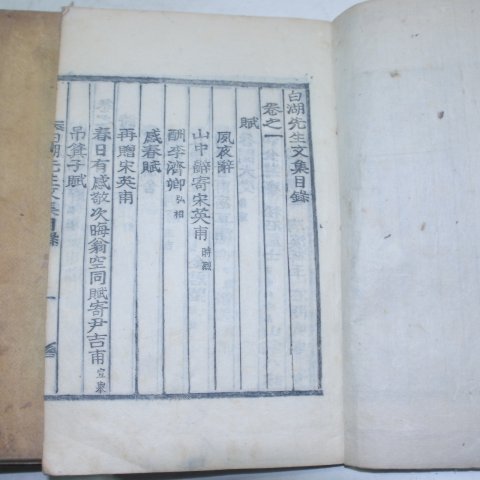 白湖先生文集目錄
卷之一
賦
夙夜辭
山中辭寄宋英甫 時烈
酬李濟卿 弘相
感春賦
再贈宋英甫
春日有感敬次晦翁空同賦寄尹吉甫 宣擧
吊箕子賦
白湖先生文集目錄 一